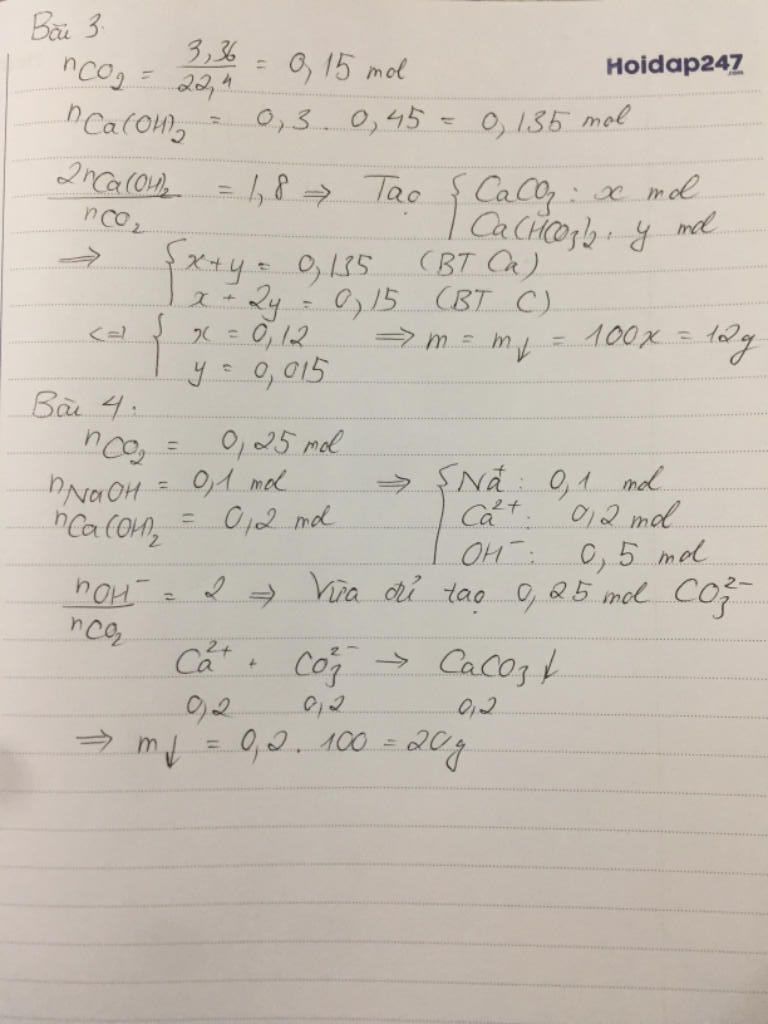 Bài 3.
nCO₂ = 3,36/22,4 = 0,15 mol
Hoidap247.com
nCa(OH)₂ = 0,3 . 0,45 = 0,135 mol
2nCa(OH)₂/nCO₂ = 1,8 ⇒ Tạo { CaCO₃ : x mol
Ca(HCO₃)₂ : y mol
⇒ { x + y = 0,135 (BT Ca)
x + 2y = 0,15 (BT C)
<=> { x = 0,12 ⇒ m = m↓ = 100x = 12g
y = 0,015
Bài 4.
nCO₂ = 0,25 mol
nNaOH = 0,1 mol ⇒ { Na⁺ : 0,1 mol
nCa(OH)₂ = 0,2 mol Ca²⁺ : 0,2 mol
OH⁻ : 0,5 mol
nOH⁻/nCO₂ = 2 ⇒ Vừa đủ tạo 0,25 mol CO₃²⁻
Ca²⁺ + CO₃²⁻ → CaCO₃↓
0,2 0,2 0,2
⇒ m↓ = 0,2 . 100 = 20g